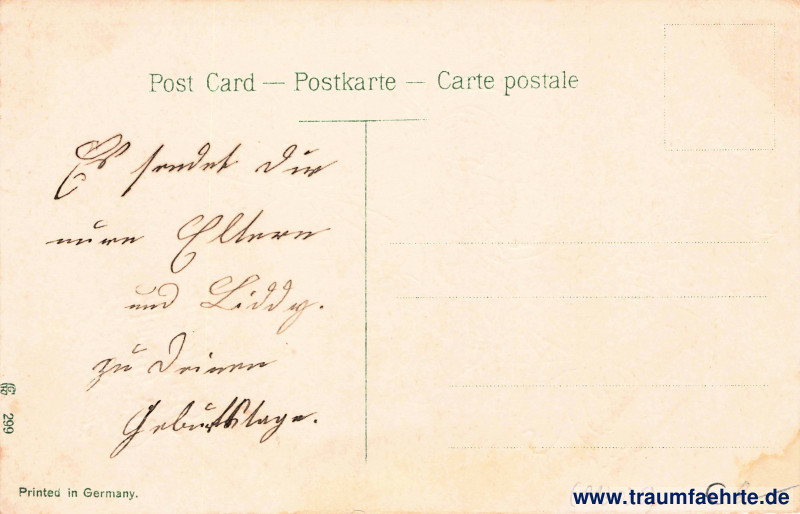 Post Card — Postkarte — Carte postale
Es sendet Dir
Eltern
und Liddy.
zu Deinen
Geburtstage.
299
Printed in Germany.
www.traumfaehrte.de